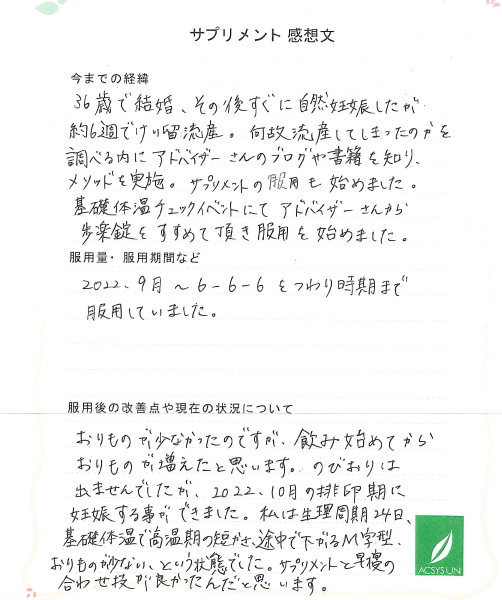 サプリメント 感想文
今までの経緯
36歳で結婚、その後すぐに自然妊娠したが
約6週でけい留流産。何故流産してしまったのかを
調べる内にアドバイザーさんのブログや書籍を知り、
メソッドを実施。サプリメントの服用も始めました。
基礎体温チェックイベントにてアドバイザーさんから
歩楽錠をすすめて頂き服用を始めました。
服用量・服用期間など
2022、9月 〜 6-6-6 をつわり時期まで
服用していました。
服用後の改善点や現在の状況について
おりものが少なかったのですが、飲み始めてから
おりものが増えたと思います。のびおりは
出ませんでしたが、2022、10月の排卵期に
妊娠する事ができました。私は生理周期24日、
基礎体温で高温期の短かさ、途中で下がるM字型、
おりものが少ない、という状態でした。サプリメントと
合わせ技が良かったんだと思います。
ACSYSUN